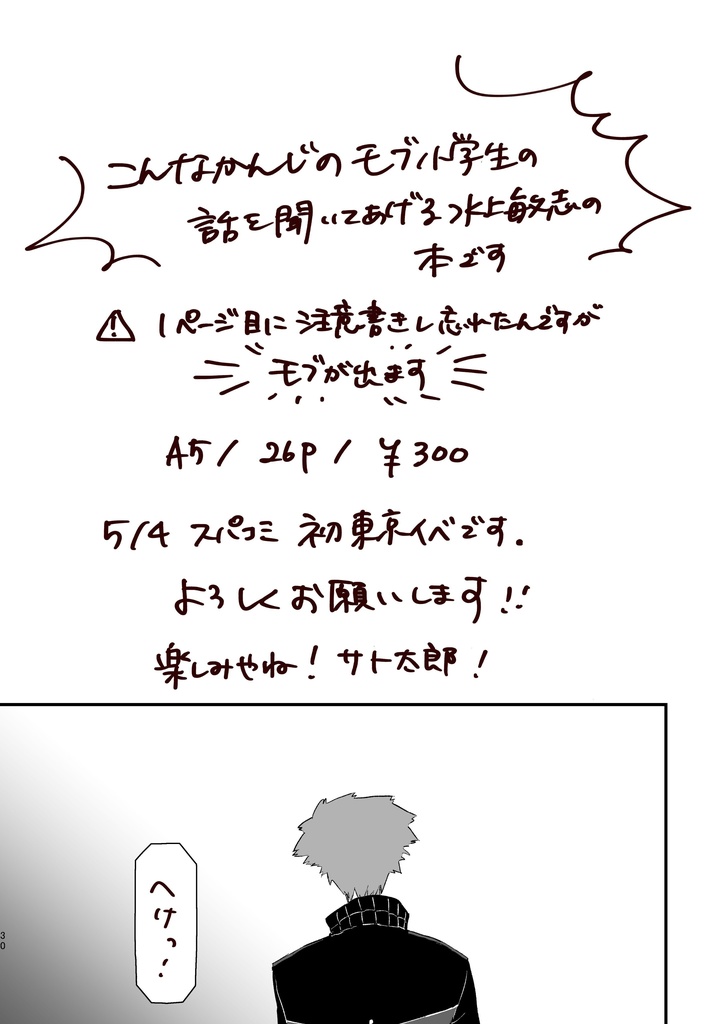 こんなかんじのモブ小学生の
話を聞いてあげる水上敏志の
本です
⚠ 1ページ目に注意書きし忘れたんですが
モブが出ます
A5/ 26P / ¥300
5/4 スパコミ 初東京イベです.
よろしくお願いします!!
楽しみやね! サト太郎!
へけっ!
30